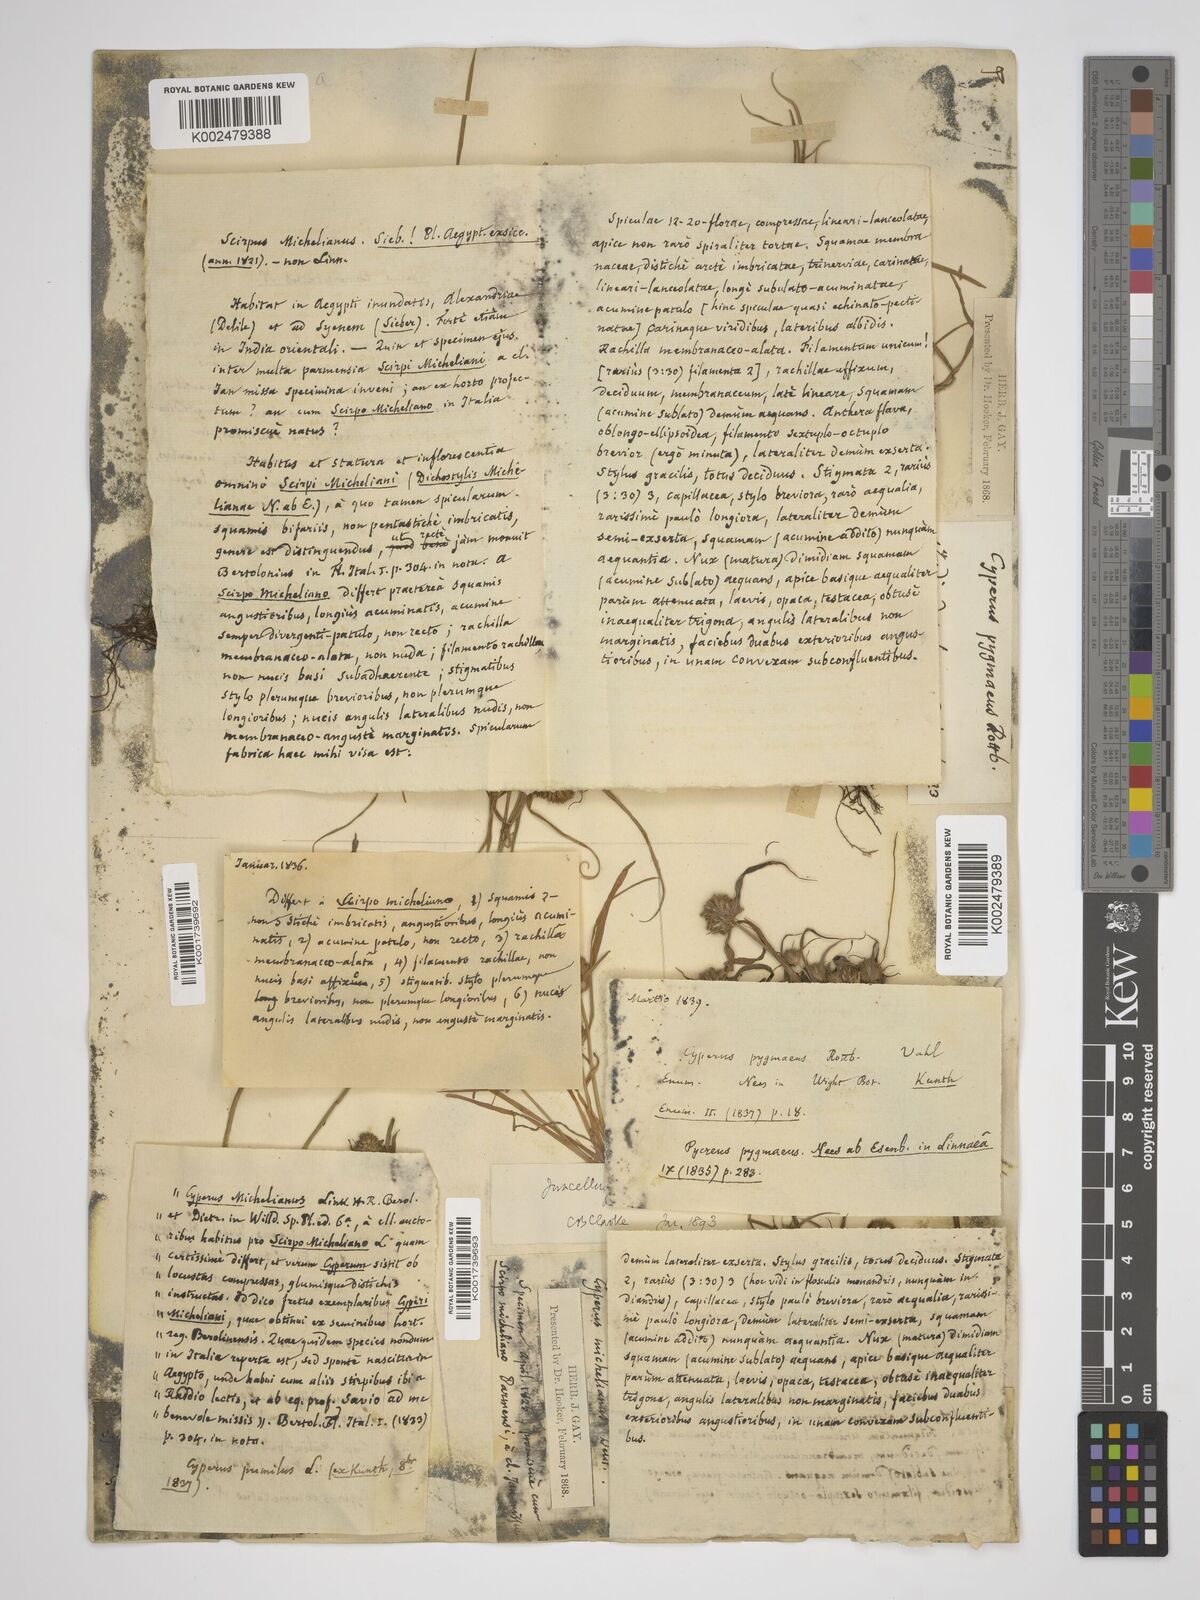 ROYAL BOTANIC GARDENS KEW
K002479388
Scirpus Michelianus. Sieb.! Pl. Aegypt. exsicc.
(ann. 1821). – non Linn.
Habitat in Aegypti inundatis, Alexandriae
(Delile) et ad Syenem (Sieber). Fortè etiàm
in India orientali. — Quin et specimen ejus
inter multa parmensia Scirpi Micheliani a cl.
Jan missa specimina inveni; an ex horto projec-
tum? an cum Scirpo Micheliano in Italia
promiscuè natus?
Habitus et statura et inflorescentia
omninò Scirpi Micheliani (Dichostylis Miche-
lianae N. ab E.), à quo tamen spicularum
squamis bifariis, non pentastichè imbricatis,
genere est distinguendus, ut rectè jàm monuit
Bertolonius in Fl. Ital. I. p. 304. in nota. A
Scirpo Micheliano differt praetereà squamis
angustioribus, longiùs acuminatis, acumine
semper divergenti-patulo, non recto; rachilla
membranaceo-alata, non nuda; filamento rachillae,
non nucis basi subadhaerente; stigmatibus
stylo plerumque brevioribus, non plerumque
longioribus; nucis angulis lateralibus nudis, non
membranaceo-angustè marginatis. Spicularum
fabrica haec mihi visa est:
Spiculae 12-20-florae, compressae, lineari-lanceolatae,
apice non rarò spiraliter tortae. Squamae membra
naceae, distichè arctè imbricatae, trinerviae, carinatae,
lineari-lanceolatae, longè subulato-acuminatae,
acumine patulo [hinc spiculae quasi echinato-pecti-
natae] carinaque viridibus, lateribus albidis.
Rachilla membranaceo-alata. Filamentum unicum!
[rariùs (3:30) filamenta 2], rachillae affixum,
deciduum, membranaceum, latè lineare, squamam
(acumine sublato) demùm aequans. Anthera flava,
oblongo-ellipsoidea, filamento sextuplo-octuplo
brevior (ergò minuta), lateraliter demùm exserta.
Stylus gracilis, totus deciduus. Stigmata 2, rariùs
(3:30) 3, capillacea, stylo breviora, rarò aequalia,
rarissimè paulò longiora, lateraliter demùm
semi-exserta, squamam (acumine addito) nunquàm
aequantia. Nux (matura) dimidiam squamam
(acumine sublato) aequans, apice basique aequaliter
parùm attenuata, laevis, opaca, testacea, obtusè
inaequaliter trigona, angulis lateralibus non
marginatis, faciebus duabus exterioribus angus-
tioribus, in unam convexam subconfluentibus.
HERB. J. GAY.
Presented by Dr. Hooker, February 1868.
Cyperus pygmaeus Rottb.
ROYAL BOTANIC GARDENS KEW
K002479389
ROYAL BOTANIC GARDENS KEW
K001739692
Januar. 1836.
Differt à Scirpo micheliano, 1) squamis 2-
non 5 stichè imbricatis, angustioribus, longiùs acumi-
natis, 2) acumine patulo, non recto, 3) rachillâ
membranaceo-alatâ, 4) filamento rachillae, non
nucis basi affixum, 5) stigmatib. stylo plerumque
long brevioribus, non plerumque longioribus, 6) nucis
angulis lateralibus nudis, non angustè marginatis.
Martio 1839.
Cyperus pygmaeus Rottb. Vahl
Enum. Nees in Wight Bot. Kunth
Enum. II. (1837) p. 18.
Pycreus pygmaeus. Nees ab Esenb. in Linnaeâ
IX (1835) p. 283.
ROYAL BOTANIC GARDENS KEW
K001739693
" Cyperus Michelianus Link H. R. Berol.
" et Dietr. in Willd. Sp. Pl. ed. 6ª, à cll. aucto-
" ribus habitus pro Scirpo Micheliano L. quam
" certissimè differt, et verum Cyperum sistit ob
" locustas compressas, glumisque distichis
" instructas. Id dico fretus exemplaribus Cyperi
" Micheliani, quae obtinui ex seminibus hort.
" reg. Berolinensis. Quae quidem species nondum
" in Italia reperta est, sed spontè nascitur in
" Aegypto, unde habui cum aliis stirpibus ibi a
" Raddio lectis, et ab eq. prof. Savio ad me
" benevole missis ". Bertol. Fl. Ital. I. (1833)
p. 304. in nota.
Cyperus pumilus L. (ex Kunth, 8br
1837).
Juncellu
CB Clarke Jan. 1893
Cyperus michelianus
HERB. J. GAY.
Presented by Dr. Hooker, February 1868.
Specimen april. 1826 promiscuè cum
Scirpo micheliano Parmensi, à cl.
Demùm lateraliter exserta. Stylus gracilis, totus deciduus. Stigmata
2, rariùs (3:30) 3 (hoc vidi in flosculis monandris, nunquàm in
diandris), capillacea, stylo paulò breviora, rarò aequalia, rarissi-
mè paulò longiora, demùm lateraliter semi-exserta, squamam
(acumine addito) nunquàm aequantia. Nux (matura) dimidiam
squamam (acumine sublato) aequans, apice basique aequaliter
parùm attenuata, laevis, opaca, testacea, obtusè inaequaliter
trigona, angulis lateralibus non marginatis, faciebus duabus
exterioribus angustioribus, in unam convexam subconfluenti-
bus.
Golden Thread
KEW
Royal Botanic Gardens
0 1 2 3 4 5 6 7 8 9 10
copyright reserved
cm